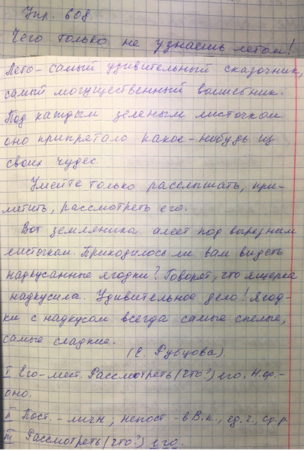 Упр. 608.
Чего только не узнаешь летом!
Лето - самый удивительный сказочник,
самый могущественный волшебник.
Под каждым зеленым листочком
оно припрятало какое-нибудь из
своих чудес.
Умейте только расслышать, при-
метить, рассмотреть его.
Вот земляника алеет под вырезным
листочкам. Приходилось ли вам видеть
надкусанные ягодки? Говорят, что ящерка
надкусила. Удивительное дело! Ягод-
ки с надкусом всегда самые спелые,
самые сладкие.
(Е. Рубцова)
I Его - мест. Рассмотреть (что?) его. Н.ф. -
оно.
II Пост. - личн, непост. - в В.п., ед.ч., ср.р.
III Рассмотреть (что?) его.